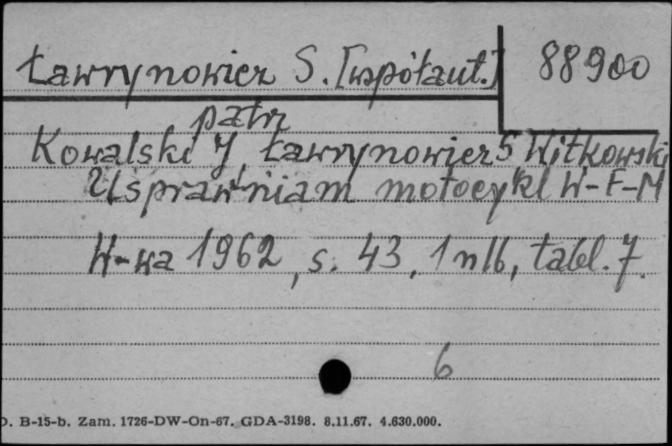 Ławrynowicz S. [współaut.]
88900
patrz
Kowalski J, Ławrynowicz S, Witkowski
Usprawniam motocykl W-F-M
W-wa 1962, s. 43, 1 nlb, tabl. 7.
6
D. B-15-b. Zam. 1726-DW-On-67. GDA-3198. 8.11.67. 4.630.000.